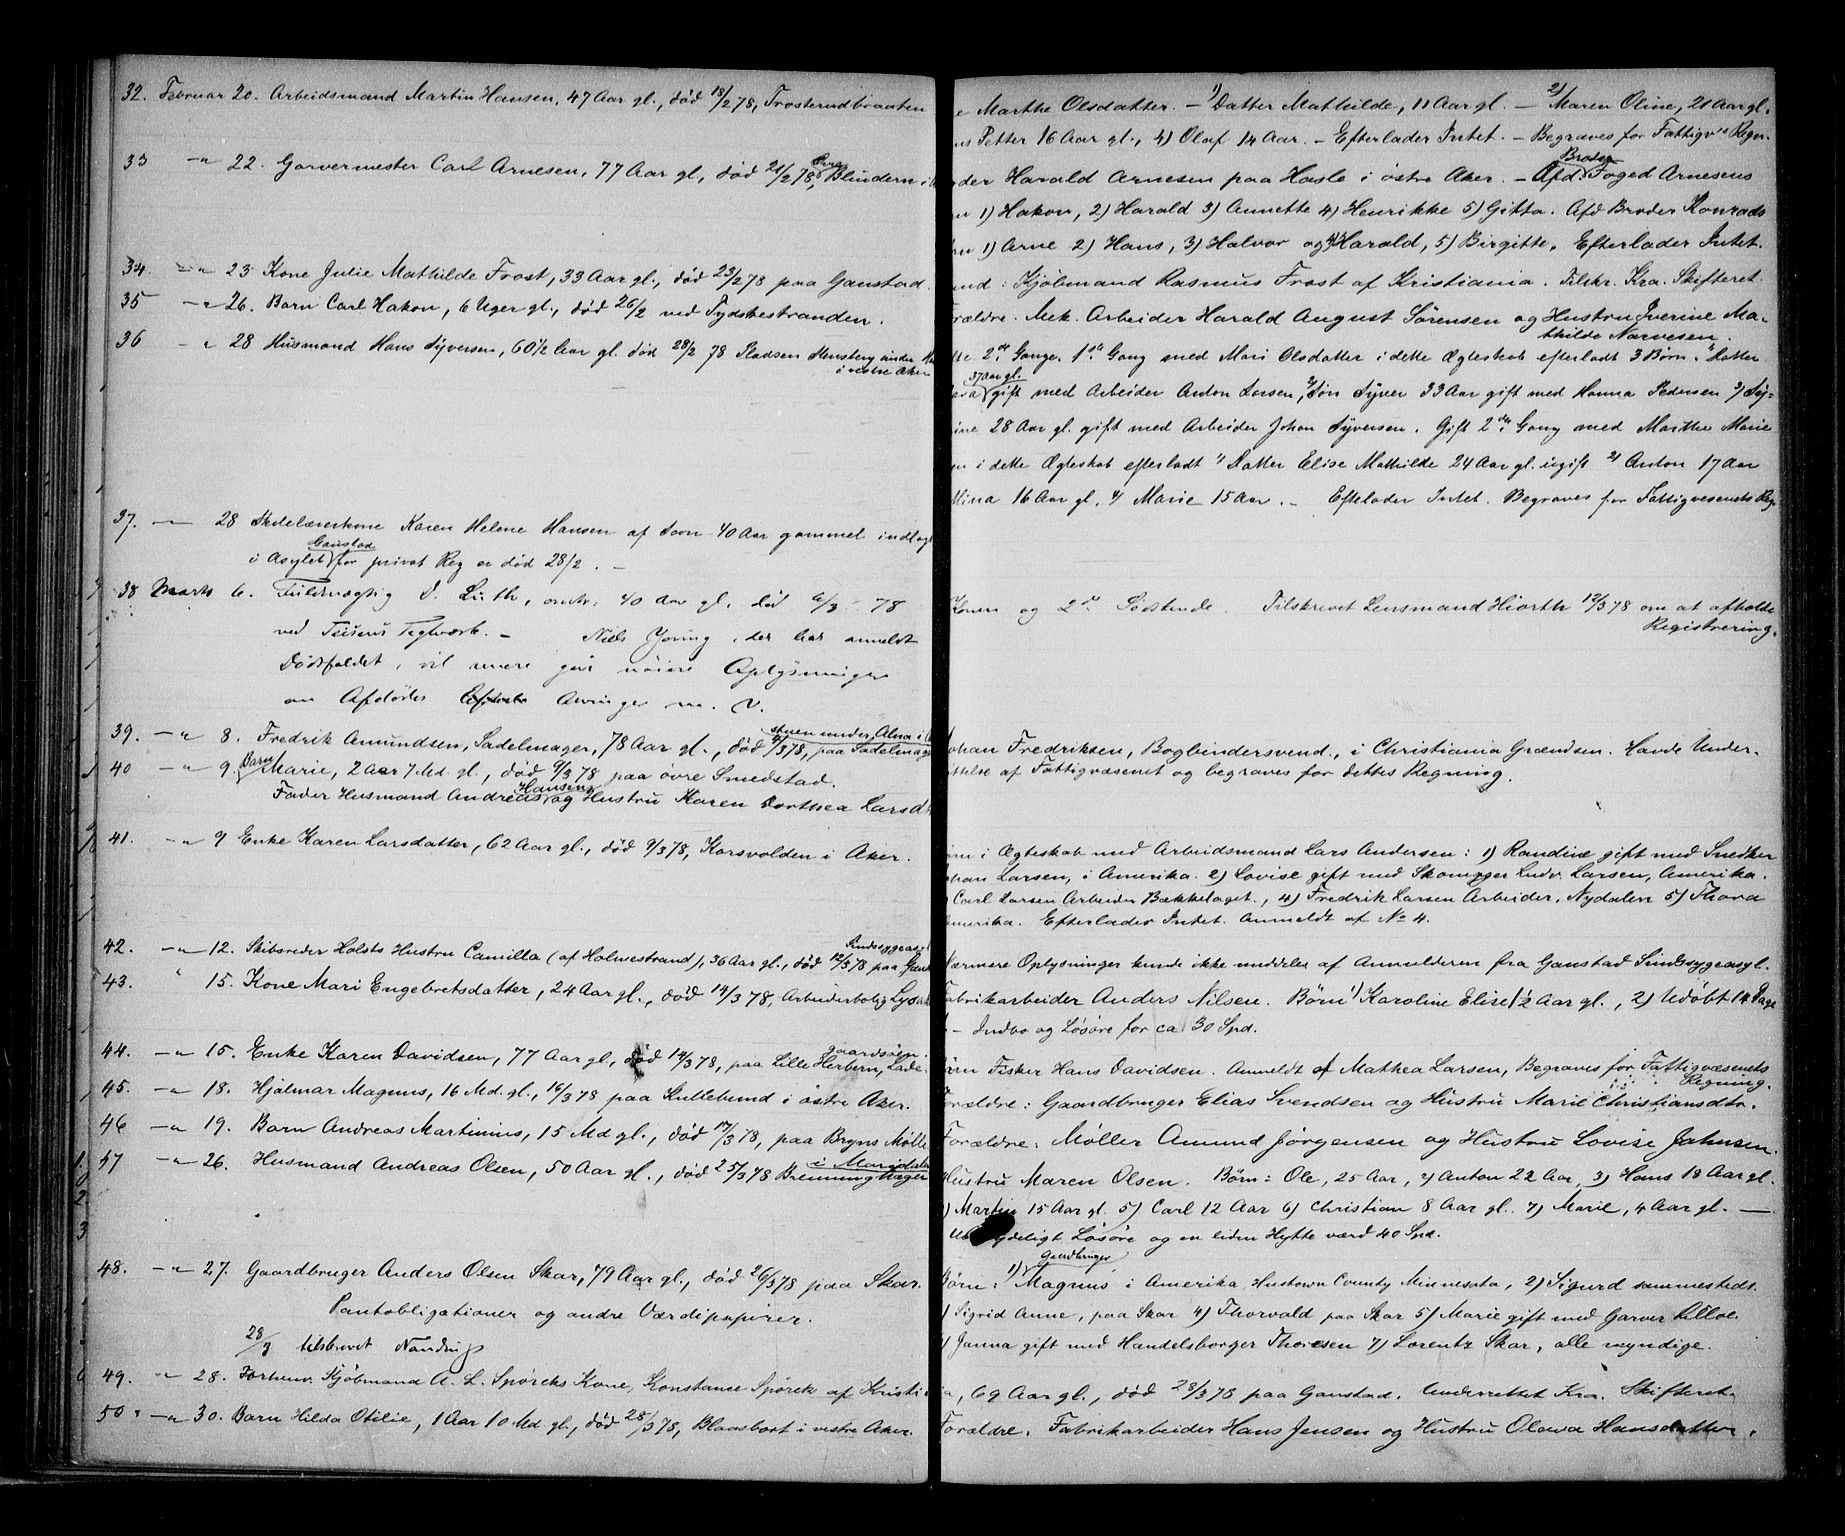 32. Februar 20. Arbeidsmand Martin Hansen, 47 Aar gl., død 18/2 78, Trosterudbraaten
33 -"- 22. Garvermester Carl Arnesen, 77 Aar gl., død 21/2 78, Øvre Blindern i
34. -"- 23 Kone Julie Mathilde Frost, 33 Aar gl., død 23/2 78 paa Gaustad.
35 -"- 26. Barn Carl Hakon, 6 Uger gl., død 26/2 ved Tydskestranden.
36 -"- 28 Husmand Hans Syversen, 60 1/2 Aar gl. død 28/2 78 Pladsen Stensberg under
i vestre Aker
37. -"- 28 Skolelærerkone Karen Helene Hansen af 40 Aar gammel indlagt
i Asylet Gaustad for privat Reg er død 28/2. -
38 Marts 6. Fuldmægtig D. Luth, omtr. 40 Aar gl. død 6/3 78
ved Teisens Teglværk. - Niels Young, der har anmeldt
Dødsfaldet, vil senere gjøre nøiere Oplysninger
om Afdødes Arvinger m. V.
39. -"- 8. Fredrik Amundsen, Sadelmager, 78 Aar gl., død 4/3 78, paa Sadelmager
stuen under Alna i
40 -"- 9. Barn Marie, 2 Aar 7 Md. gl., død 9/3 78 paa øvre Smedstad.
Fader Husmand Andreas Hansen og Hustru Karen Dorthea Larsd
41. -"- 9 Enke Karen Larsdatter, 62 Aar gl., død 9/3 78, Korsvolden i Aker.
42. -"- 12. Skibsreder Holsts Hustru Camilla (af Holmestrand), 36 Aar gl., død 12/3 78 paa
Sindssygeasyl
43. " 15. Kone Mari Engebretsdatter, 24 Aar gl., død 14/3 78, Arbeiderbolig
44. -"- 15. Enke Karen Davidsen, 77 Aar gl., død 14/3 78, paa Lille Herbern, Lade-
gaardsøen.
45. -"- 18. Hjalmar Magnus, 16 Md. gl., 16/3 78 paa Kullebund i østre Aker.
46 -"- 19. Barn Andreas Martinius, 15 Md gl., død 17/3 78, paa Bryns Mølle
47 -"- 26. Husmand Andreas Olsen, 50 Aar gl., død 25/3 78 Brenninghagen
i Maridal
48. -"- 27. Gaardbruger Anders Olsen Skar, 79 Aar gl., død 26/3 78 paa Skar.
Pantobligationer og andre Værdipapirer.
28/3 tilskrevet Nandrup
49. -"- 28. Forhenv. Kjøbmand A. L. Spørcks Kone, Konstance Spørck af Kristi
50. -"- 30. Barn Hilda Otilie, 1 Aar 10 Md. gl., død 28/3 78, Blaasbort i vestre Aker.
e Marthe Olsdatter. - 1) Datter Mathilde, 11 Aar gl. - 2) Maren Oline, 21 Aar gl.
ns Petter 16 Aar gl., 4) Olaf 14 Aar. - Efterlader Intet. - Begraves for Fattigv's Regn.
der Harald Arnesen paa Hasle i østre Aker. - Afd. Broder Foged Arnesens
n 1) Hakon, 2) Harald 3) Annette 4) Henrikke 5) Gitta. Afd Broder Konrads
n 1) Arne 2) Hans, 3) Halvor og 4) Harald, 5) Birgitte. Efterlader Intet.
and: Kjøbmand Rasmus Frost af Kristiania. Tilskr. Kra. Skifteret.
rældre. Mek. Arbeider Harald August Sørensen og Hustru Iverine Ma-
thilde Narvesen.
fte 2de Gange. 1ste Gang med Mari Olsdatter i dette Ægteskab efterladt 3 Børn. 1) Datter
37 Aar gl. gift med Arbeider Anton Larsen, 2) Søn Syver 33 Aar gift med Hanna Pedersen 3) Sy-
ine 28 Aar gl. gift med Arbeider Johan Syversen. Gift 2den Gang med Marthe Marie
n i dette Ægteskab efterladt 1) Datter Elise Mathilde 24 Aar gl. ugift 2) Anton 17 Aar
Mina 16 Aar gl. 4) Marie 15 Aar. - Efterlader Intet. Begraves for Fattigvesenets Reg.
Konen og 2de Sødskende. Tilskrevet Lensmand Hiorth 12/3 78 om at afholde
Registrering.
Johan Fredriksen, Bogbindersvend, i Christiania Grændsen. Havde Under-
støttelse af Fattigvæsenet og begraves for dettes Regning.
Børn i Ægteskab med Arbeidsmand Lars Andersen: 1) Randine gift med Snedker
Johan Larsen, i Amerika. 2) Lovise gift med Skomager Ludv. Larsen, Amerika.
Carl Larsen Arbeider Bækkelaget., 4) Fredrik Larsen Arbeider, Nydalen 5) Thora
Amerika. Efterlader Intet. Anmeldt af No 4.
Nærmere Oplysninger kunde ikke meddeles af Anmelderen fra Gaustad Sindssygeasyl.
Fabrikarbeider Anders Nilsen. Børn 1) Karoline Elise 1 1/2 Aar gl., 2) Udøbt 14 Dage
- Indbo og Løsøre for ca 30 Spd.
Børn Fisker Hans Davidsen. Anmeldt af Mathea Larsen, Begraves for Fattigvæsenets
Regning.
Forældre: Gaardbruger Elias Svendsen og Hustru Marie Christiansdtr.
Forældre: Møller Amund Jørgensen og Hustru Lovise Johnsen.
Hustru Maren Olsen. Børn: Ole, 25 Aar, 2) Anton 22 Aar, 3) Hans 18 Aar gl.
) Martin 15 Aar gl. 5) Carl 12 Aar 6) Christian 8 Aar gl. 7) Marie, 4 Aar gl. —
Ubetydeligt Løsøre og en liden Hytte værd 40 Spd.
Børn: 1) Gaardbruger Magnus i Amerika Hustown County Minnesota, 2) Sigurd sammestedt.
) Sigrid Anne, paa Skar 4) Thorvald paa Skar 5) Marie gift med Garver Lilloe
) Janna gift med Handelsborger Thoresen 7) Lorentz Skar, alle myndige.
ia, 69 Aar gl., død 28/3 78 paa Gaustad. Underrettet Kra. Skifteret.
Forældre. Fabrikarbeider Hans Jensen og Hustru Olava Hansdatter.